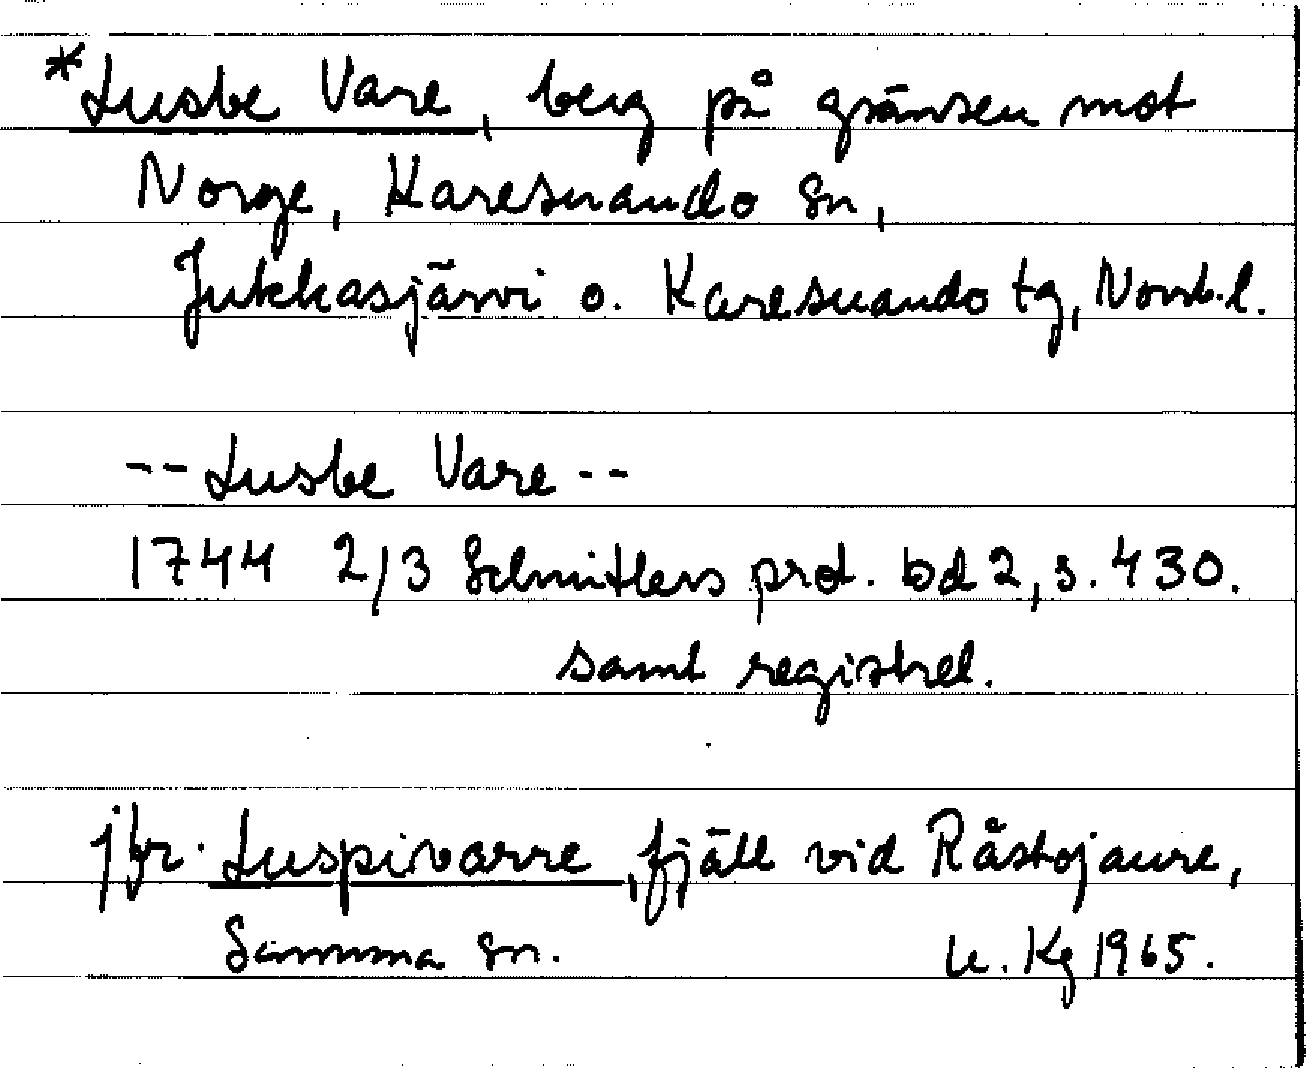 *Lusbe Vare, berg på gränsen mot
Norge, Karesuando sn,
Jukkasjärvi o. Karesuando tg, Norrb. l.
-- Lusbe Vare --
1744 2/3 Schnitlers prot. bd 2, s. 430.
samt registret.
jfr. Luspivarre, fjäll vid Råstojaure,
Samma sn. U. Kg 1965.